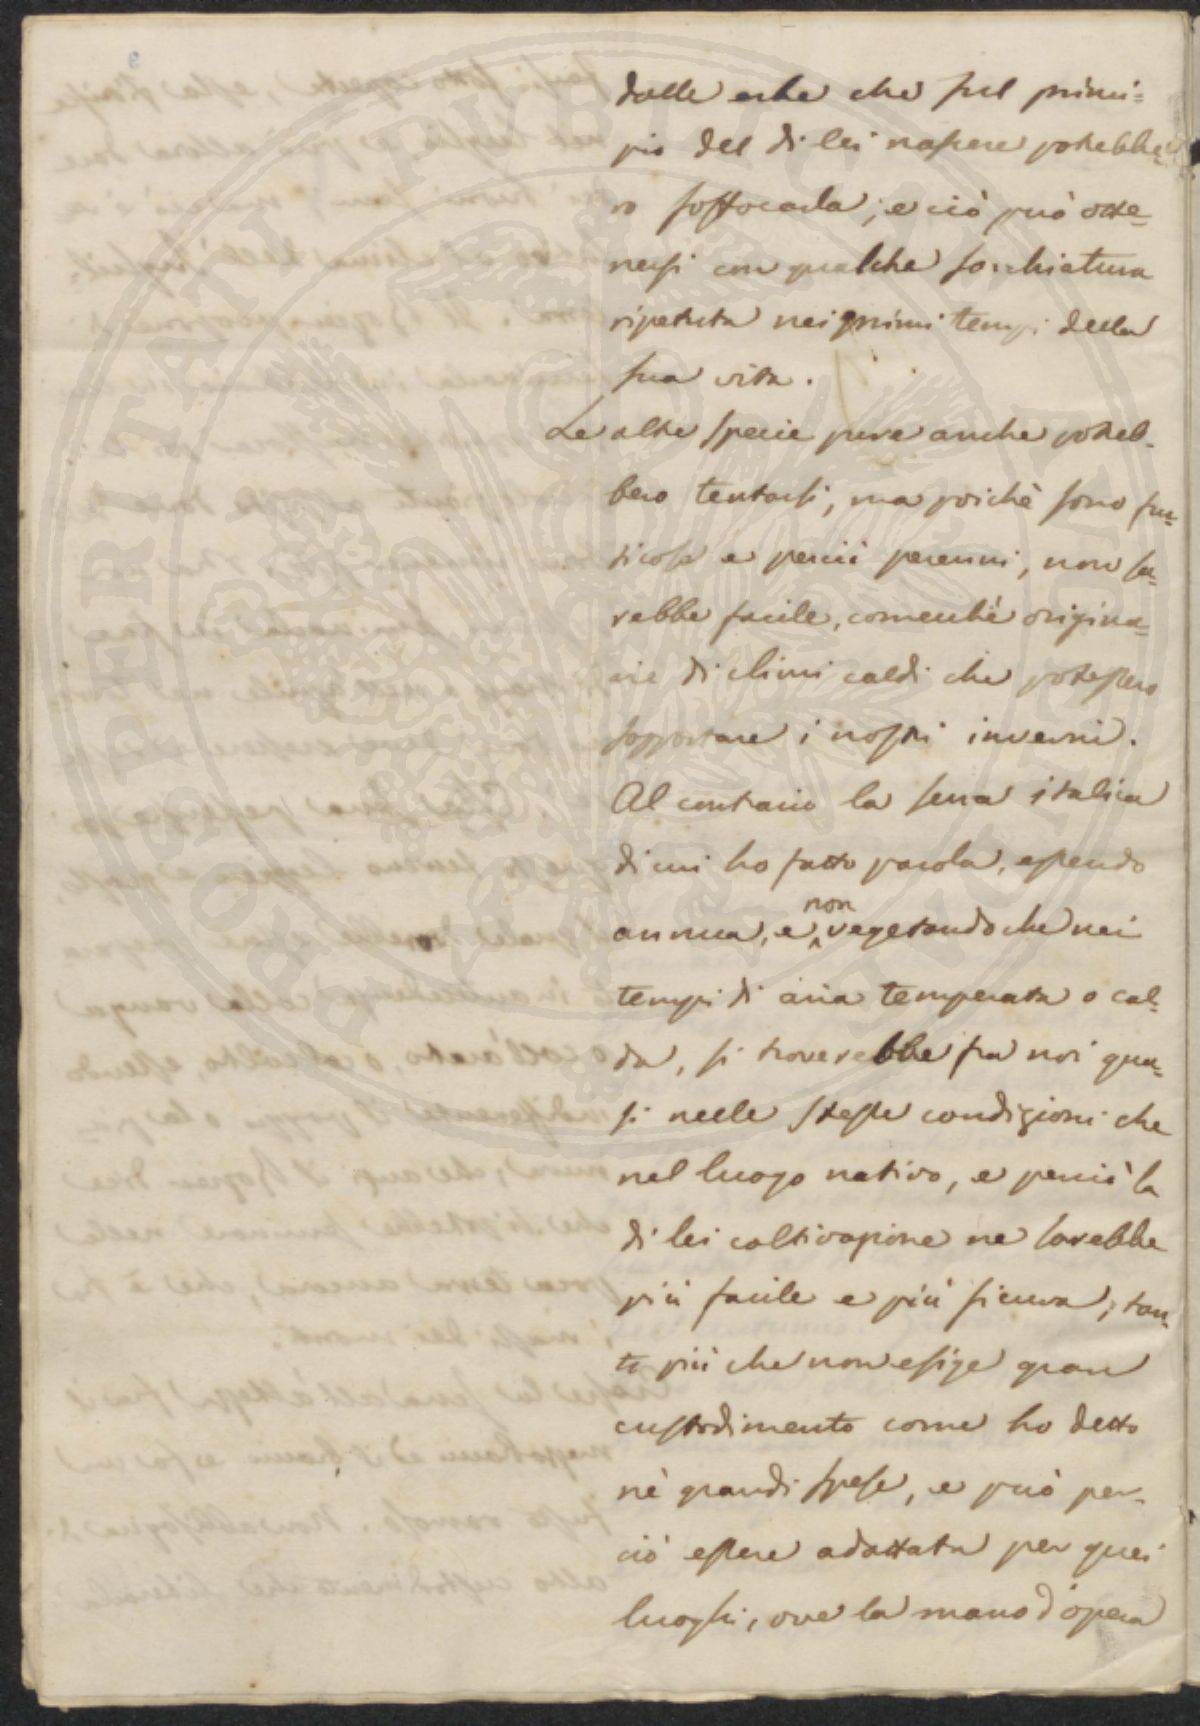 dalle erbe che sul princi=
pio del di lei nascere potrebbe=
ro soffocarla; e ciò può otte=
nersi con qualche sarchiatura
ripetuta nei primi tempi della
sua vita.
Le altre specie pure anche potreb=
bero tentarsi, ma poichè sono fru=
ticose e perciò perenni, non sa=
rebbe facile, comecchè origina=
rie di climi caldi che potessero
sopportare i nostri inverni.
Al contrario la sena italica
di cui ho fatto parola, essendo
annua, e non vegetando che nei
tempi di aria temperata o cal=
da, si troverebbe fra noi qua=
si nelle stesse condizioni che
nel luogo nativo, e perciò la
di lei coltivazione ne sarebbe
più facile e più sicura, tan=
to più che non esige gran
custodimento come ho detto
nè grandi spese, e può per=
ciò essere adattata per quei
luoghi, ove la mano d'opera
PROSPERITATI PUBLICAE